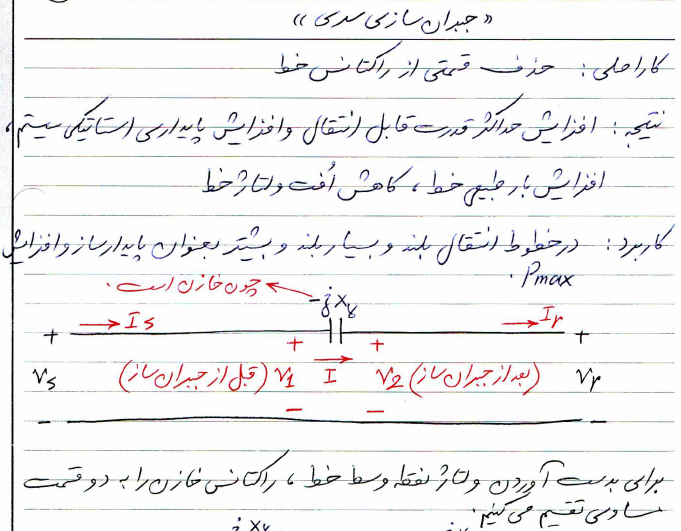 « جبران سازی سری »
کار اصلی : حذف قسمتی از راکتانس خط
نتیجه : افزایش حداکثر قدرت قابل انتقال و افزایش پایداری استاتیکی سیستم ،
افزایش بار طبیعی خط ، کاهش اُفت ولتاژ خط
کاربرد : در خطوط انتقال بلند و بسیار بلند و بیشتر بعنوان پایدارساز و افزایش
Pmax .
چون خازن است . ← -jxγ
+ → Is + + → Ir +
Vs (قبل از جبران ساز) V1 I → V2 (بعد از جبران ساز) Vr
- - - -
برای بدست آوردن ولتاژ نقطه وسط خط ، راکتانس خازن را به دو قسمت
مساوی تقسیم می کنیم .